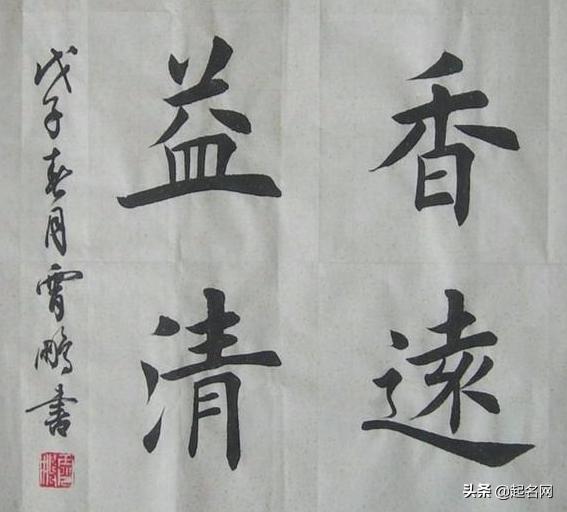 香遠
益清
戊子春月霄鵬書
头条 @起名网